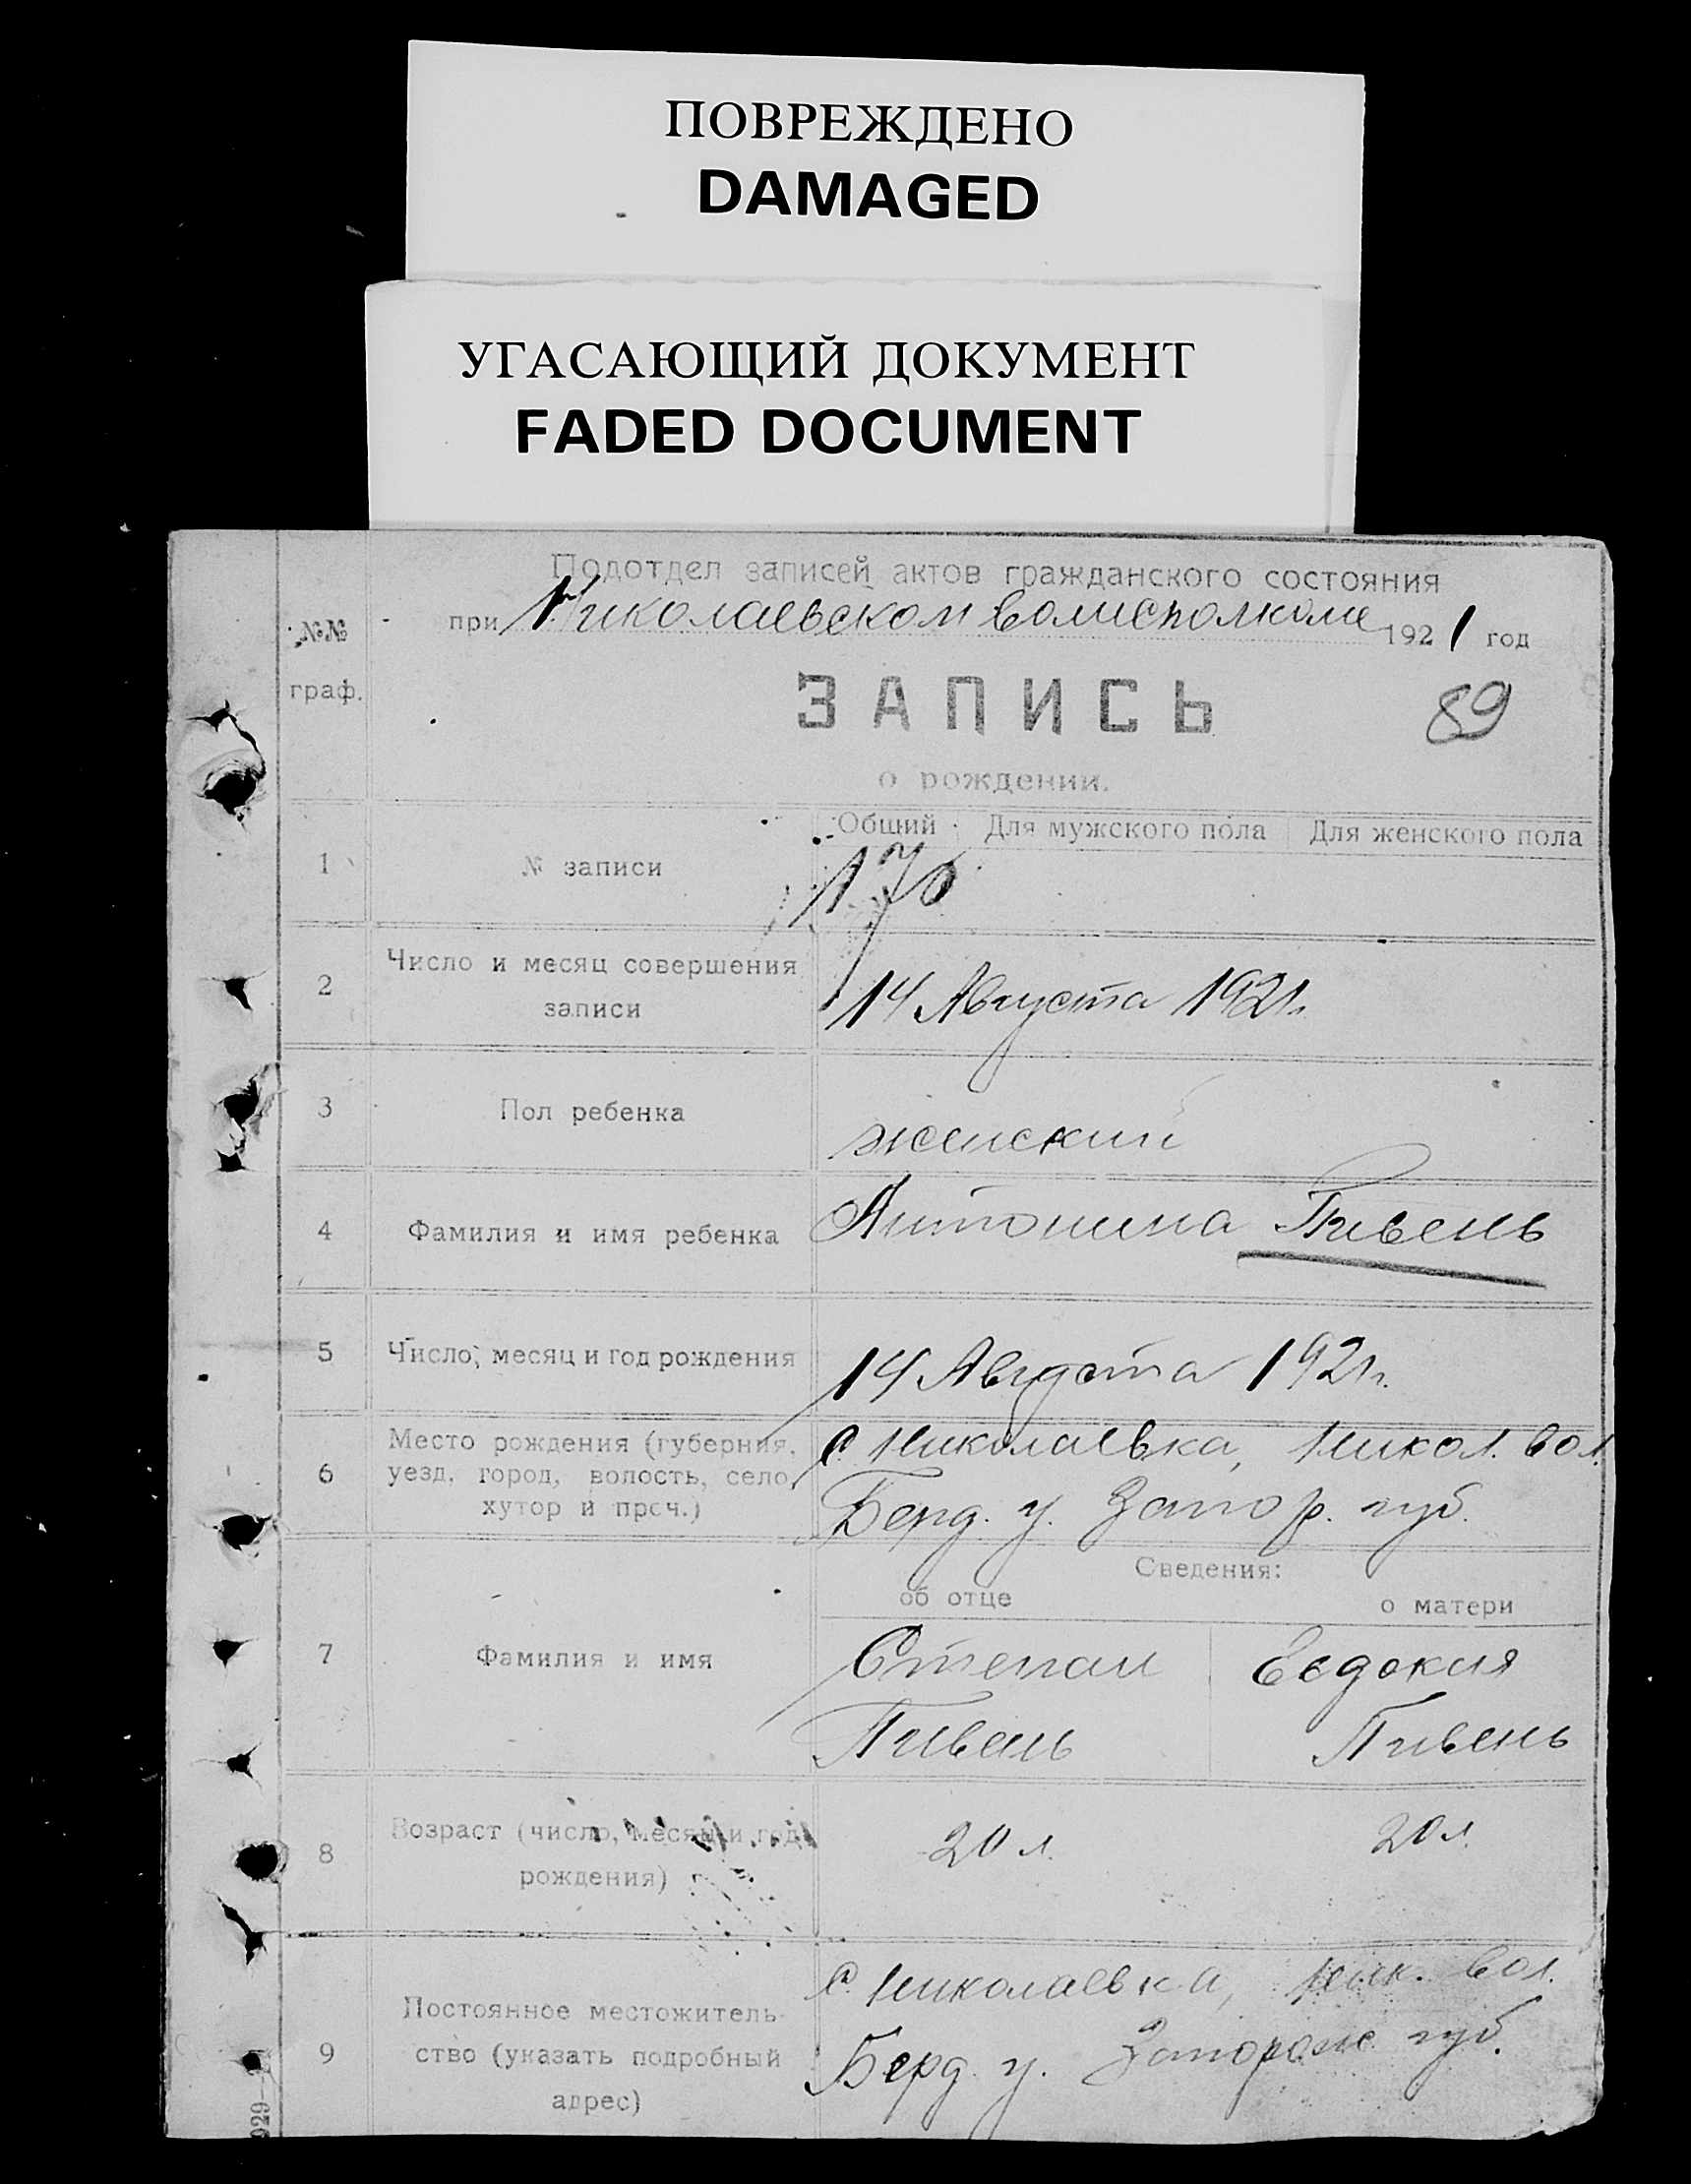 ПОВРЕЖДЕНО
DAMAGED
УГАСАЮЩИЙ ДОКУМЕНТ
FADED DOCUMENT
Подотдел записей актов гражданского состояния
при Николаевском волисполкоме 1921 год
№№ граф.
ЗАПИСЬ
89
о рождении.
Общий Для мужского пола Для женского пола
1 № записи 170
2 Число и месяц совершения
записи 14 Августа 1921 г.
3 Пол ребенка женский
4 Фамилия и имя ребенка Антонина Пивень
5 Число, месяц и год рождения 14 Августа 1921 г.
Место рождения (губерния, с. Николаевка, Никол. вол.
6 уезд, город, волость, село,
хутор и проч.) Берд. у. Запор. губ.
Сведения:
об отце о матери
7 Фамилия и имя Степан Евдокия
Пивень Пивень
Возраст (число, месяц и год
8 20 л. 20 л.
рождения)
с. Николаевка, Ник. вол.
Постоянное местожитель-
9 ство (указать подробный Берд. у. Запорож. губ.
адрес)